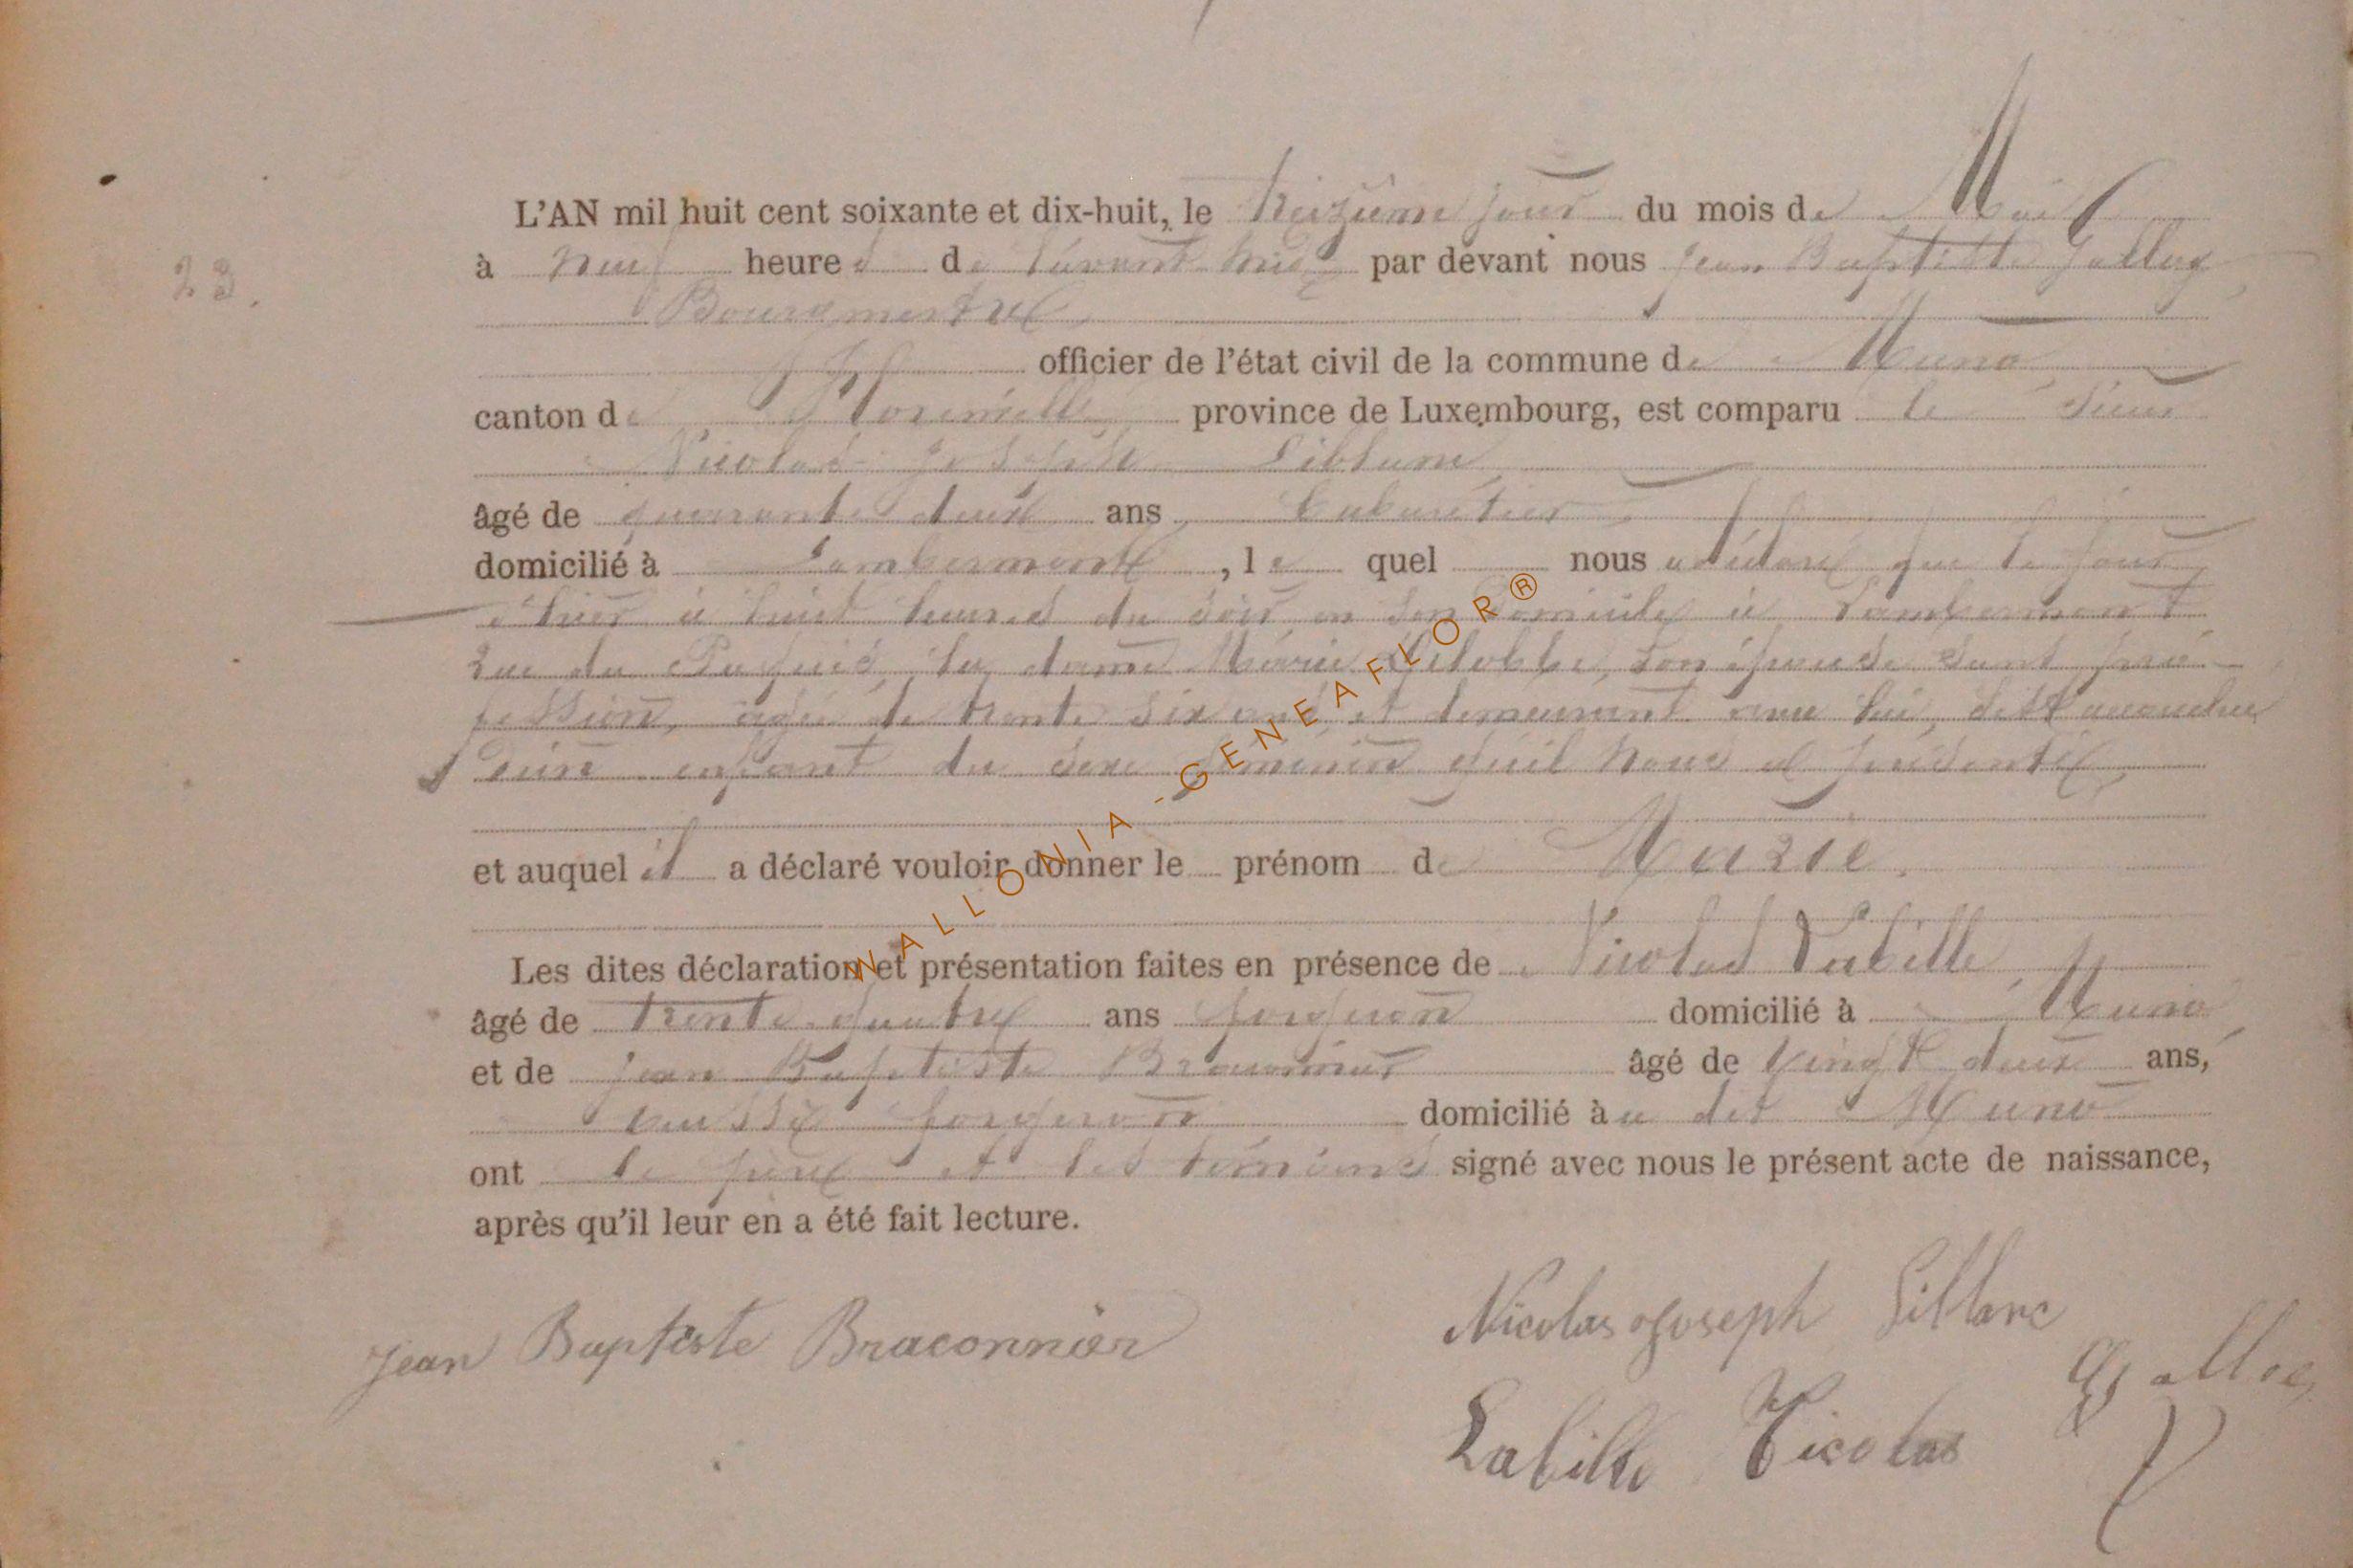 23.
L'AN mil huit cent soixante et dix-huit, le treizième jour du mois de Mai
à neuf heures de l'avant midi par devant nous Jean Baptiste
Bourgmestre
officier de l'état civil de la commune de Muno
canton de Florenville province de Luxembourg, est comparu le Sieur
Nicolas Joseph
âgé de quarante deux ans Cabaretier
domicilié à Lambermont, le quel nous a déclaré que le jour
d'hier à huit heures du soir en son domicile à Lambermont
rue du la dame Marie son épouse sans pro-
fession, agée de trente six ans et demeurant avec lui, est accouchée
d'un enfant du sexe féminin qu'il nous a présenté
et auquel il a déclaré vouloir donner le prénom de Marie.
Les dites déclaration et présentation faites en présence de Nicolas Labille
âgé de trente quatre ans forgeron domicilié à Muno
et de Jean Baptiste Braconnier âgé de vingt deux ans,
aussi forgeron domicilié au dit Muno
ont le père et les témoins signé avec nous le présent acte de naissance,
après qu'il leur en a été fait lecture.
Jean Baptiste Braconnier
Nicolas Joseph
Labille Nicolas
WALLONIA-GENEAFLOR®